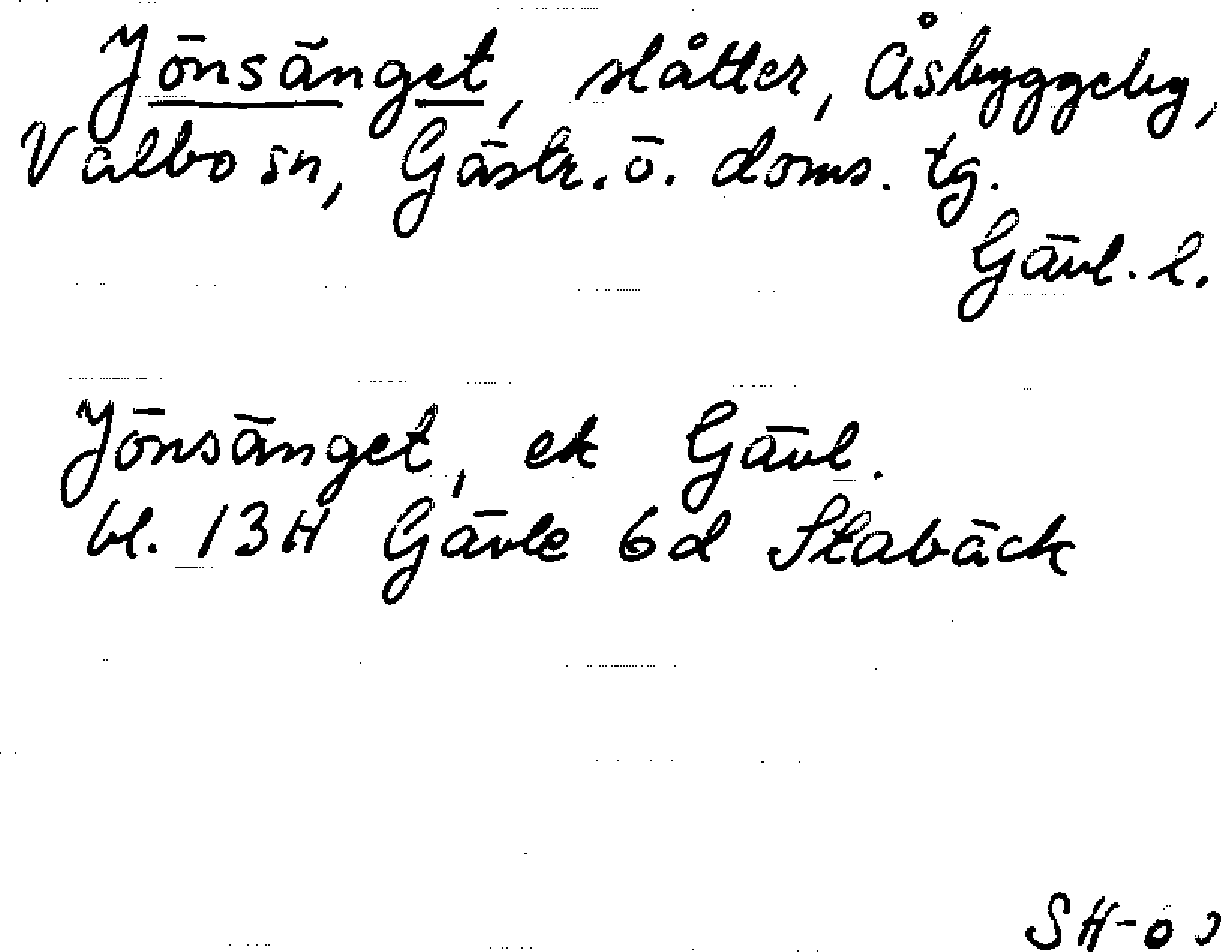 Jönsänget, slåtter, Åsbyggeby,
Valbo sn, Gästr. ö. doms. tg.
Gävl. l.
Jönsänget, ek Gävl.
bl. 13H Gävle 6d Stabäck